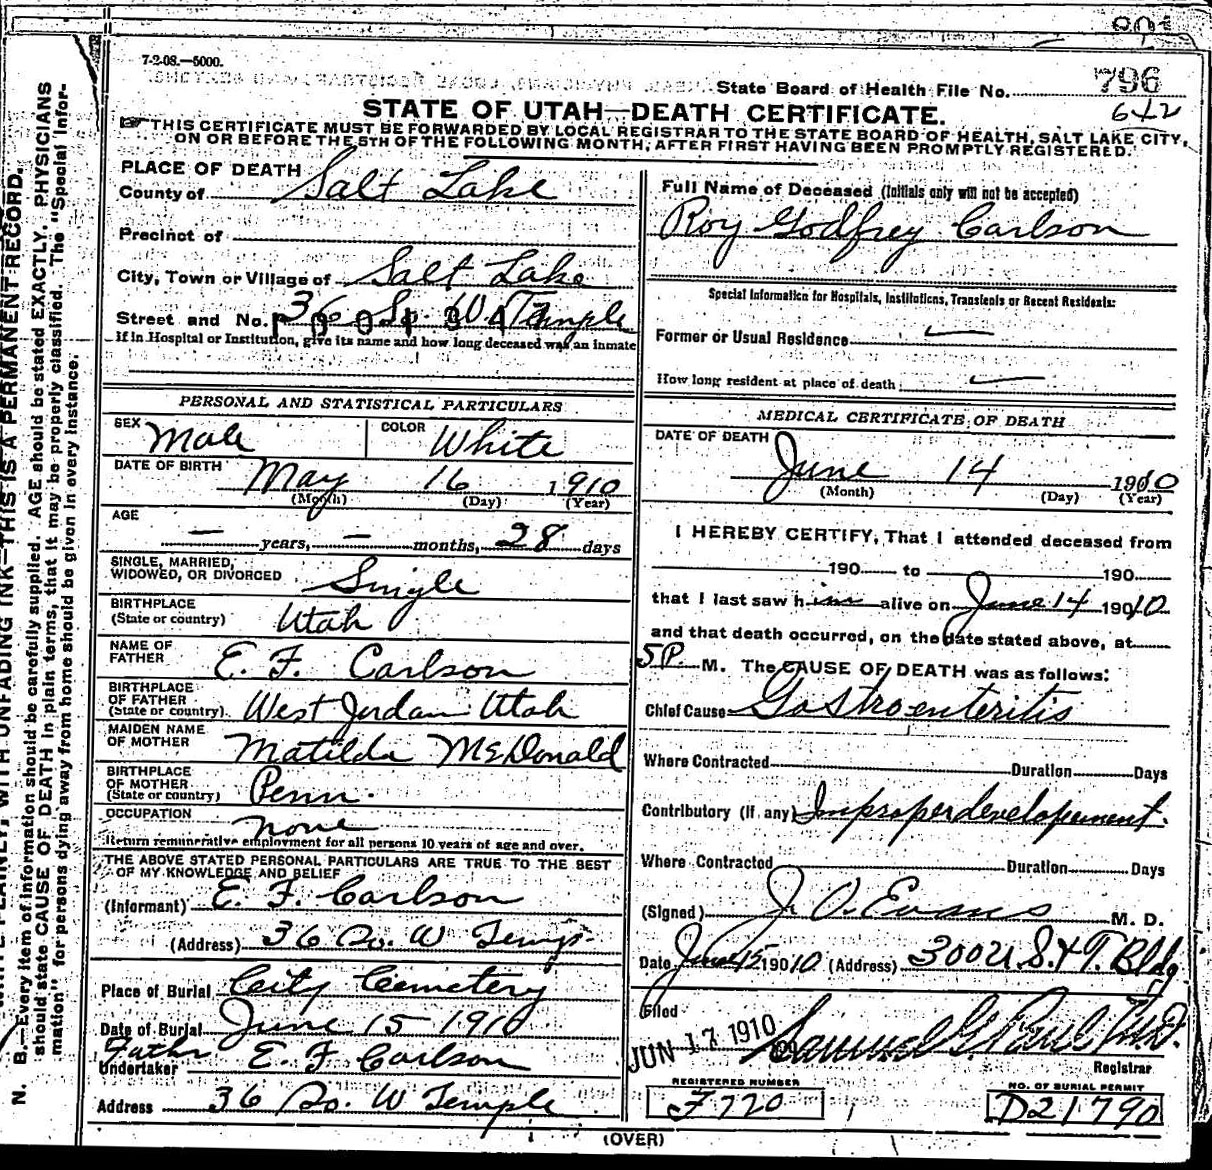 801
7-2-08.—5000.
State Board of Health File No. 796
642
STATE OF UTAH—DEATH CERTIFICATE.
THIS CERTIFICATE MUST BE FORWARDED BY LOCAL REGISTRAR TO THE STATE BOARD OF HEALTH, SALT LAKE CITY,
ON OR BEFORE THE 5TH OF THE FOLLOWING MONTH, AFTER FIRST HAVING BEEN PROMPTLY REGISTERED.
PLACE OF DEATH
County of Salt Lake
Precinct of
City, Town or Village of Salt Lake
Street and No. 36 So. W. Temple
If in Hospital or Institution, give its name and how long deceased was an inmate
PERSONAL AND STATISTICAL PARTICULARS
SEX Male COLOR White
DATE OF BIRTH May 16 1910
(Month) (Day) (Year)
AGE
— years, — months, 28 days
SINGLE, MARRIED,
WIDOWED, OR DIVORCED Single
BIRTHPLACE
(State or country) Utah
NAME OF
FATHER E. F. Carlson
BIRTHPLACE
OF FATHER
(State or country) West Jordan Utah
MAIDEN NAME
OF MOTHER Matilda McDonald
BIRTHPLACE
OF MOTHER
(State or country) Penn.
OCCUPATION none
Return remunerative employment for all persons 10 years of age and over.
THE ABOVE STATED PERSONAL PARTICULARS ARE TRUE TO THE BEST
OF MY KNOWLEDGE AND BELIEF
(Informant) E. F. Carlson
(Address) 36 So. W Temp.
Place of Burial City Cemetery
Date of Burial June 15 1910
Father E. F Carlson
Undertaker
Address 36 So. W Temple
Full Name of Deceased (Initials only will not be accepted)
Roy Godfrey Carlson
Special Information for Hospitals, Institutions, Transients or Recent Residents:
Former or Usual Residence —
How long resident at place of death —
MEDICAL CERTIFICATE OF DEATH
DATE OF DEATH June 14 1910
(Month) (Day) (Year)
I HEREBY CERTIFY, That I attended deceased from
190 to 190
that I last saw him alive on June 14 19010
and that death occurred, on the date stated above, at
5P. M. The CAUSE OF DEATH was as follows:
Chief Cause Gastroenteritis
Where Contracted Duration Days
Contributory (if any) Improper developement.
Where Contracted Duration Days
(Signed) J. O. Evans M. D.
Date June 15 19010 (Address) Bldg
Filed
JUN 17 1910 Samuel G. Paul M.D.
Registrar
REGISTERED NUMBER
F 770
NO. OF BURIAL PERMIT
D21790
(OVER)
WITH UNFADING INK—THIS IS A PERMANENT RECORD.
N. B.—Every item of information should be carefully supplied. AGE should be stated EXACTLY. PHYSICIANS
should state CAUSE OF DEATH in plain terms, that it may be properly classified. The "Special Infor-
mation" for persons dying away from home should be given in every instance.